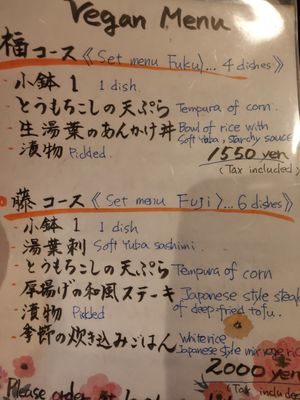 Vegan Menu
福コース《Set menu Fuku》... 4 dishes》
- 小鉢1 1 dish.
- とうもろこしの天ぷら Tempura of corn.
- 生湯葉のあんかけ丼 Bowl of rice with
Soft Yuba, starchy sauce
- 漬物 Pickled.
1550 yen
(Tax included)
藤コース《Set menu Fuji》... 6 dishes》
- 小鉢1 1 dish
- 湯葉刺 Soft Yuba sashimi
- とうもろこしの天ぷら Tempura of corn
- 厚揚げの和風ステーキ Japanese style steak
of deep-fried tofu.
- 漬物 Pickled
- 季節の炊き込みごはん white rice
Japanese style rice
2000 yen
(Tax
Please order